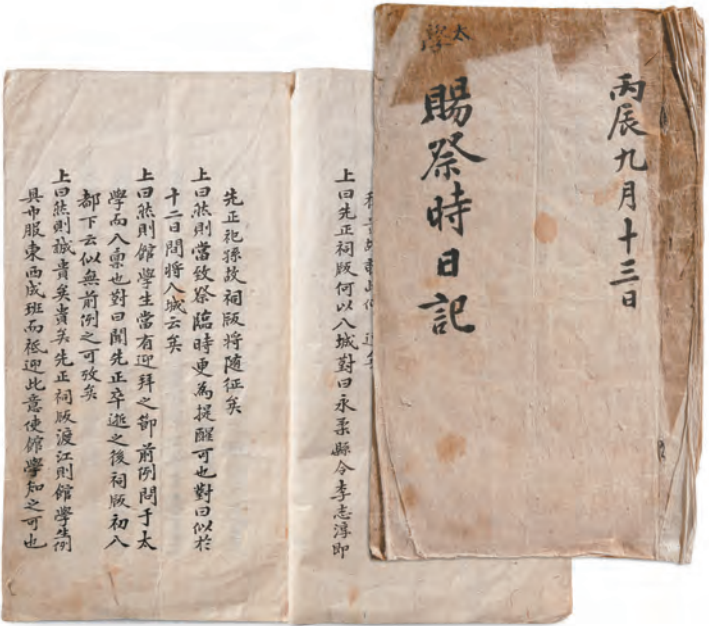 丙辰九月十三日
太學
賜祭時日記
上曰先正祠版何以入城對曰永柔縣令李志淳即
先正祀孫故祠版將隨征矣
上曰然則當致祭臨時更為提醒可也對曰似於
十二日間將入城云矣
上曰然則館學生當有迎拜之節前例問于太
學而入稟也對曰聞先正卒逝之後祠版初入
都下云似無前例之可攷矣
上曰然則誠貴矣貴矣先正祠版渡江則館學生例
具巾服東西成班而祗迎此意使館學知之可也